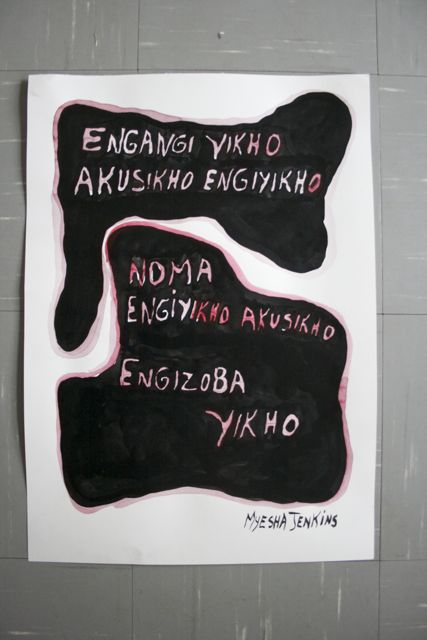 ENGANGI YIKHO
AKUSIKHO ENGIYIKHO
NOMA
ENGIYIKHO AKUSIKHO
ENGIZOBA
YIKHO
MYESHA JENKINS